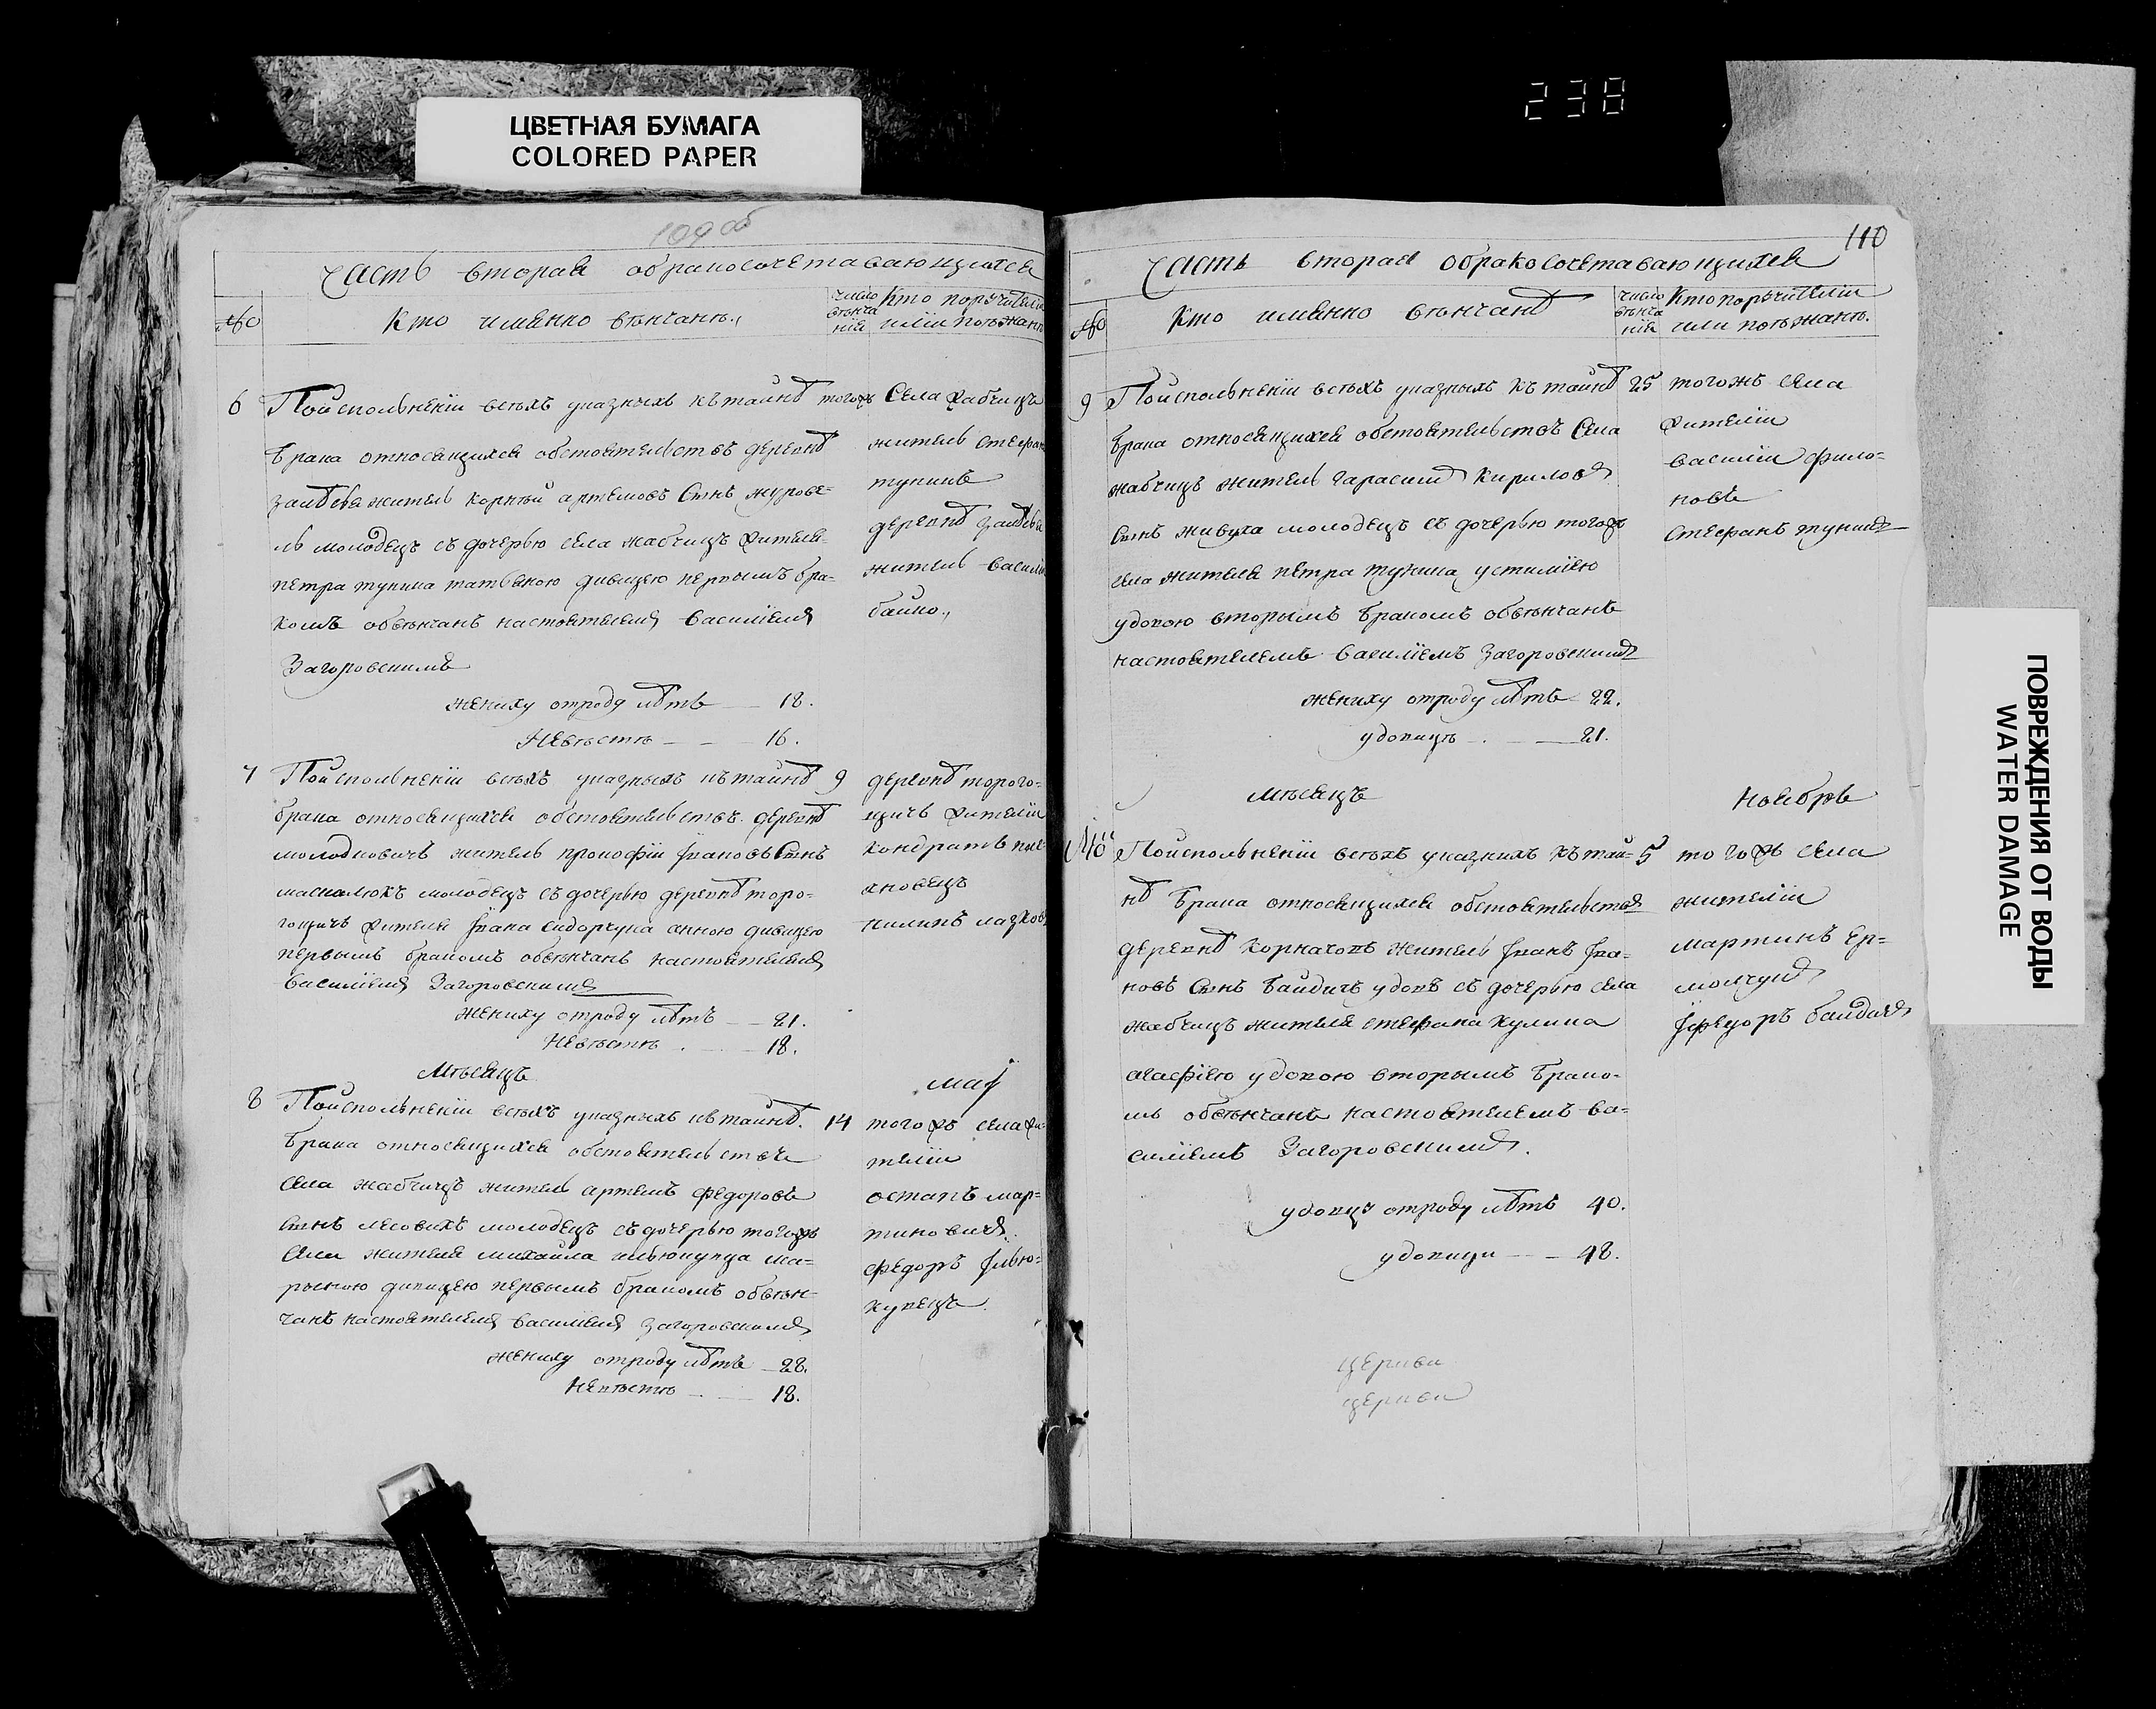 ЦВЕТНАЯ БУМАГА
COLORED PAPER
238
109 об
Часть вторая обракосочетавающихся
№
Кто имянно вѣнчанъ.
число вѣнча нія
Кто поручители
или поѣзжанъ
6
Поисполненіи всѣхъ указныхъ къ таинѣ
брака относящихся обстоятельствъ деревнѣ
житель Корнѣй артемовъ Сынъ журове-
ль молодецъ съ дочерью села жабчицъ жителя
петра тукина татьяною дивицею первымъ бра-
комъ обвѣнчанъ настоятелемъ василіемъ
Загоровскимъ
жениху отроду лѣтъ — 18.
Невѣстѣ — — 16.
тогожъ Села жабчицъ
житель стефанъ
тукинъ
деревнѣ
житель василій
байко.
7
Поисполненіи всѣхъ указныхъ къ таинѣ
брака относящихся обстоятельствъ деревнѣ
молодковичъ житель прокофій Ивановъ Сынъ
маскалюкъ молодецъ съ дочерью деревнѣ торо-
гощичъ жителя Ивана сидорчука анною дивицею
первымъ бракомъ обвѣнчанъ настоятелемъ
василіемъ Загоровскимъ
жениху отроду лѣтъ — 21.
Невѣстѣ . — 18.
9
деревнѣ торого-
щичъ жители
кондратъ
Мѣсяцъ
маі
8
Поисполненіи всѣхъ указныхъ къ таинѣ.
брака относящихся обстоятельствъ
села жабчицъ житель артемъ федоровъ
Сынъ лесовихъ молодецъ съ дочерью тогожъ
Села жителя михаила илькукупца ма-
рьяною дивицею первымъ бракомъ обвѣн-
чанъ настоятелемъ василіемъ загоровскимъ
жениху отроду лѣтъ — 28.
Невѣстѣ — — 18.
14
тогожъ села жи-
тели
остапъ мар-
тиновичъ.
федоръ Илью-
купецъ.
110
Часть вторая обракосочетавающихся
№
Кто имянно вѣнчанъ
число вѣнча нія
Кто поручители
или поѣзжанъ.
9
Поисполненіи всѣхъ указныхъ къ таинѣ
брака относящихся обстоятельствъ Села
жабчицъ житель гарасимъ Кириловъ
Сынъ живуха молодецъ съ дочерью тогожъ
села жителя петра тукина устиніею
удовою вторымъ бракомъ обвѣнчанъ
настоятелемъ василіемъ Загоровскимъ
жениху отроду лѣтъ 22.
удовицѣ . — 21.
25
тогожъ села
жители
василій фило-
новъ
стефанъ тукинъ
мѣсяцъ
ноября
10
Поисполненіи всѣхъ указнихъ къ таи-
нѣ брака относящихся обстоятельствъ
деревнѣ Корначовъ житель Иванъ Ива-
новъ Сынъ Байдичъ удовъ съ дочерью села
жабчицъ жителя стефана Кулика
агафіею удовою вторымъ брако-
мъ обвѣнчанъ настоятелемъ ва-
силіемъ Загоровскимъ.
удовцу отроду лѣтъ 40.
удовици — — 48.
5
тогожъ села
жители
мартинъ ер-
молчукъ
федоръ байдачъ
церкви
церкви
ПОВРЕЖДЕНИЯ ОТ ВОДЫ
WATER DAMAGE